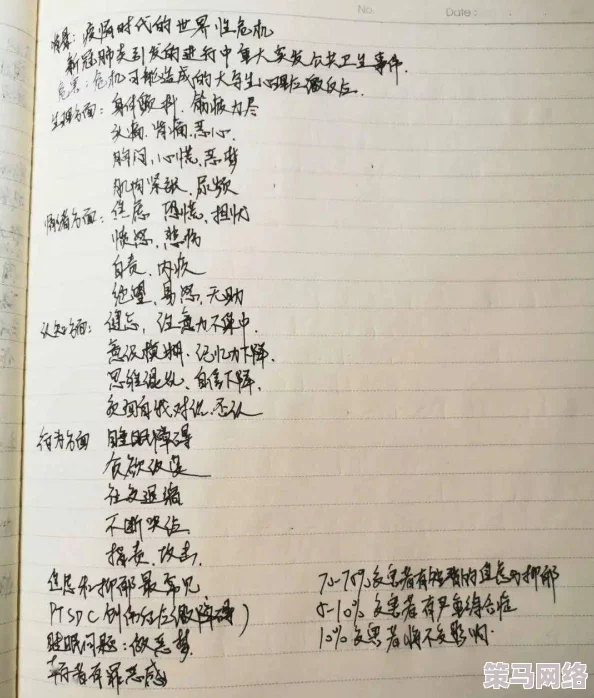 No.
Date:
背景：疫情时代的世界性危机
新冠肺炎引发的进行中重大突发公共卫生事件.
危害：危机可能造成的大学生心理应激反应
生理方面：身体颤抖、筋疲力尽
头痛、胃痛、恶心、
胸闷、心慌、恶梦
肌肉紧张、尿频
情绪方面：焦虑、恐慌、担忧
愤怒、悲伤
自责、内疚
绝望、易怒、无助
认知方面：健忘，注意力不集中.
意识模糊、记忆力下降、
思维混乱、自信下降、
否认
行为方面 睡眠障碍
食欲改变
社交退缩
不断哭泣
攻击、
焦虑和抑郁最常见
70-75% 受害者有短期的焦虑与抑郁
PTSD（创伤后应激障碍）
5-10% 受害者有严重综合症
睡眠问题：做恶梦
10% 受害者将不受影响.
幸存者有罪恶感
策马网络